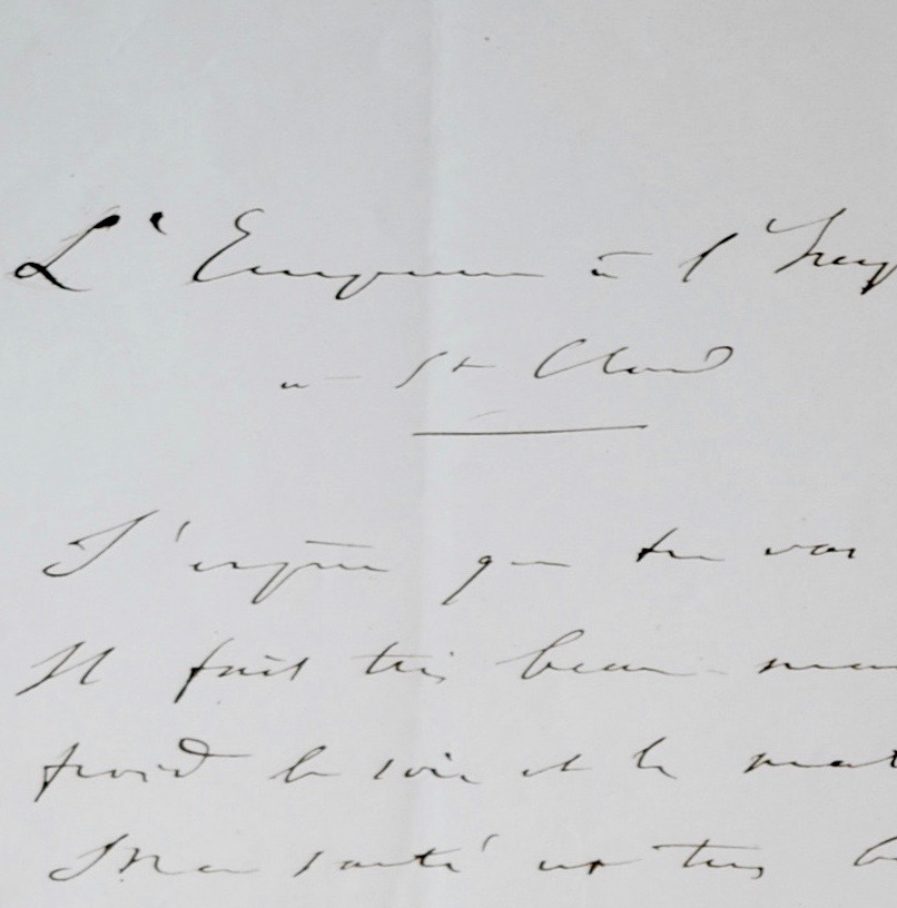 L'Empereur à l'Imp
à St Cloud
J'espère que tu vas
Il fait très beau mais
froid le soir et le mat
Ma santé est très b